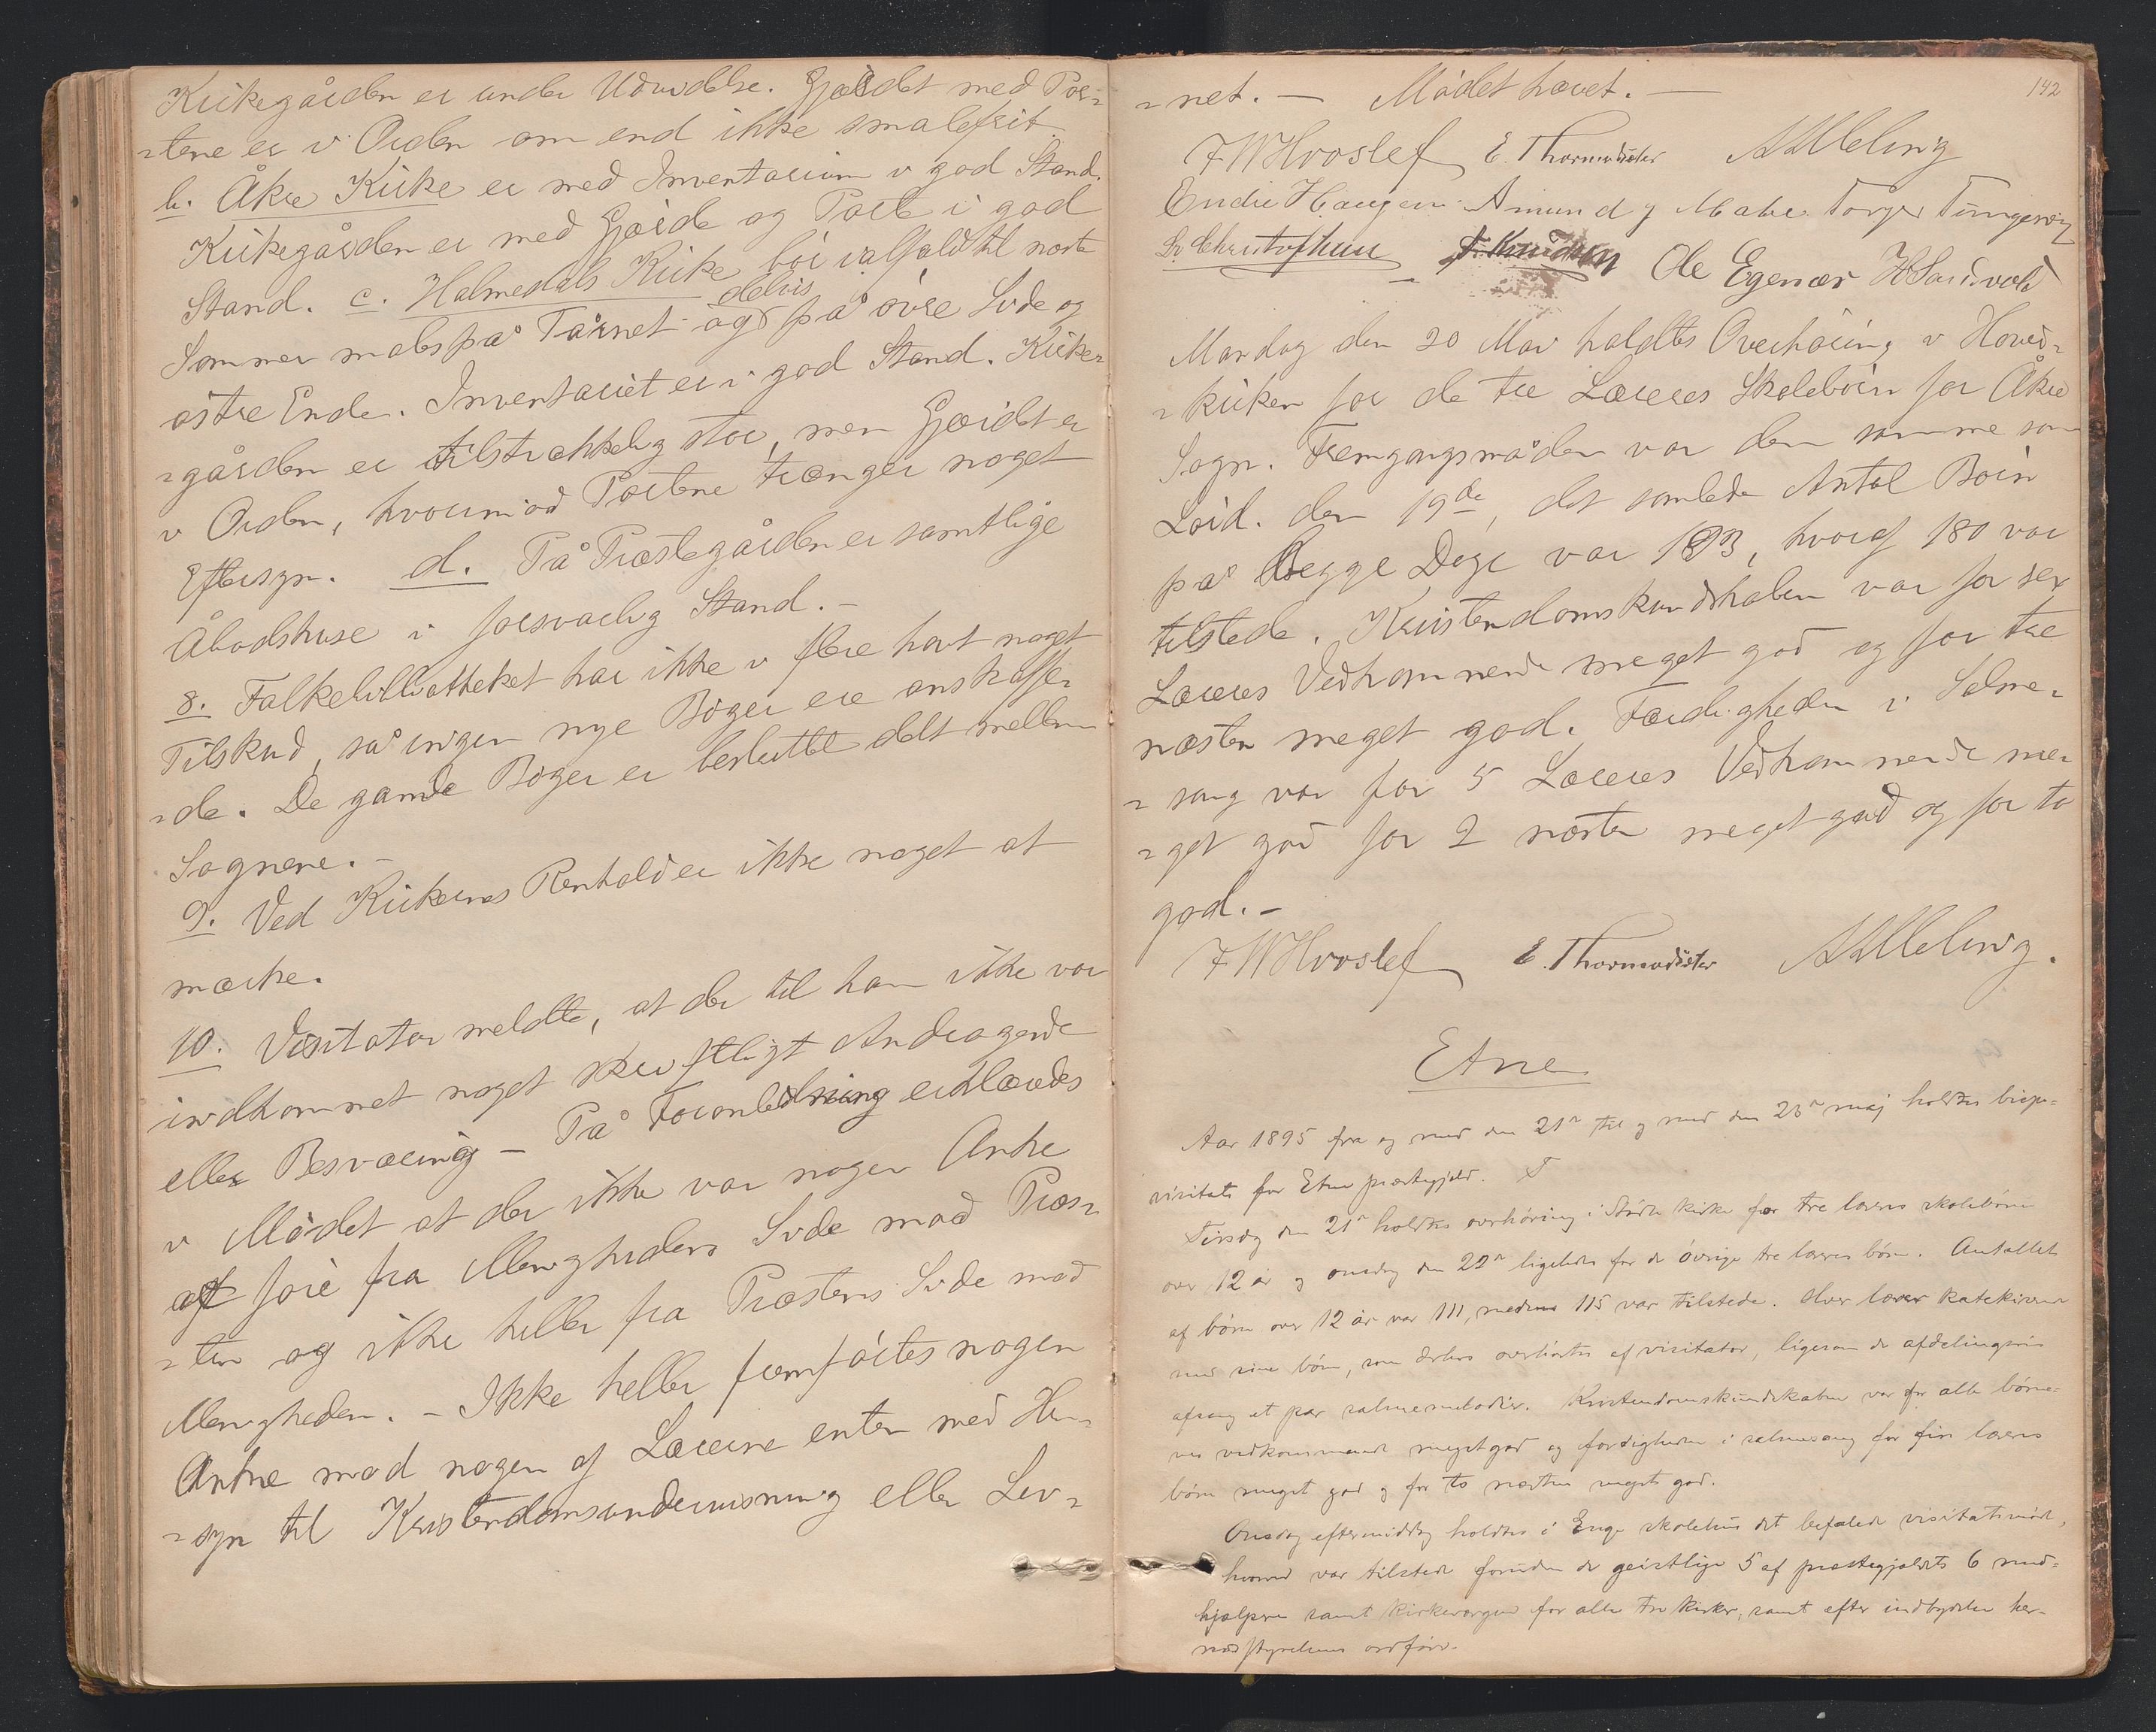 Kirkegården er under Udvidelse. Gjærdet med Por-
-tene er i Orden om end ikke smalefrit.
b. Åkre Kirke er med Inventarium i god Stand.
Kirkegården er med Gjærde og Porte i god
Stand. c. Holmedals Kirke bør ialfald til næste
Sommer males på Tårnet og delvis på øvre Side og
østre Ende. Inventariet er i god Stand. Kirke-
-gården er tilstrækkelig stor, men Gjærdet er
i Orden, hvorimod Portene trænger noget
Eftersyn. d. På Præstegården er samtlige
Åbodshuse i forsvarlig Stand. -
8. Folkebibliotheket har ikke i flere havt noget
Tilskud, så ingen nye Bøger ere anskaffe-
-de. De gamle Bøger er besluttet delt mellem
Sognene. -
9. Ved Kirkernes Renhold er ikke noget at
mærke.
10. Visitator meldte, at der til ham ikke var
indkommet noget skriftligt Andragende
eller Besværing - På Foranledning erklæredes
i Mødet at der ikke var nogen Anke
at føre fra Menighedens Side mod Præs-
-ten og ikke heller fra Præstens Side mod
Menigheden. - Ikke heller fremførtes nogen
Anke mod nogen af Lærerne enten med Hen-
-syn til Kristendomsundervisning eller Lev-
142
-net. - Mødet hævet. -
FWHvoslef E. Thormodsæter AMeling
Endre Haugen Amund Mabe Torger Tungesvig
Chr Christophersen J. Knudsen Ole Egenæs H Sandvold
Mandag den 20 Mai holdtes Overhøring i Hoved-
-kirken for de tre Læreres Skolebørn for Åkre
Sogn. Fremgangsmåden var den samme som
Lørd. den 19de, det samlede Antal Børn
på begge Dage var 193, hvoraf 180 var
tilstede. Kristendomskundskaben var for sex
Læreres Vedkommende meget god og for tre
næsten meget god. Færdigheden i Salme-
-sang var for 5 Læreres Vedkommende me-
-get god for 2 næsten meget god og for to
god. -
FWHvoslef E. Thormodsæter AMeling.
Etne
Aar 1895 fra og med den 21de til og med den 23de maj holdtes bispe-
visitats for Etne præstegjeld.
Tirsdag den 21de holdtes overhøring i Støle kirke for tre læreres skolebørn
over 12 år og onsdag den 22de ligeledes for de øvrige tre læreres børn. Antallet
af børn over 12 år var 111, medens 115 var tilstede. Hver lærer katekiserede
med sine børn, som derhos overhørtes af visitator, ligesom de afdelingsvis
afsang et par salmemelodier. Kristendomskundskaben var for alle børne-
nes vedkommende meget god og færdigheden i salmesang for fire læreres
børn meget god og for to næsten meget god.
Onsdag eftermiddag holdtes i Enge skolehus det befalede visitatsmøde,
hvorved var tilstede foruden de geistlige 5 af præstegjeldets 6 med-
hjælpere samt kirkeværgerne for alle tre kirker, samt efter indbydelse her-
redsstyrelsens ordfører.